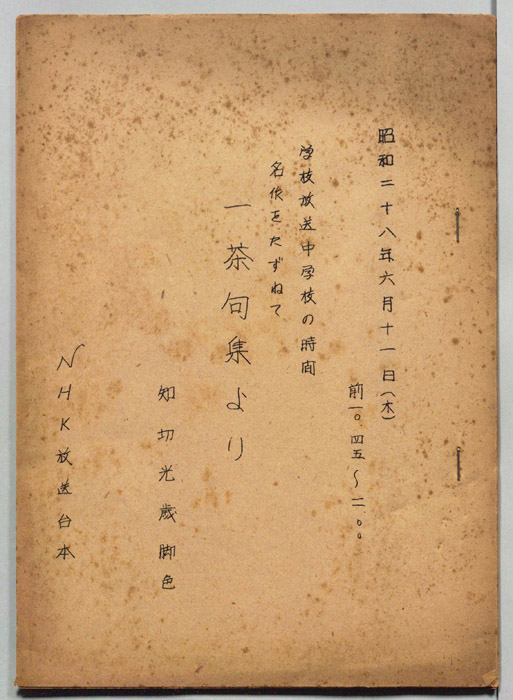 昭和二十八年六月十一日(木)
前一〇.四五〜一一.〇〇
学校放送中学校の時間
名作をたずねて
一茶句集より
知切光歳脚色
NHK放送台本